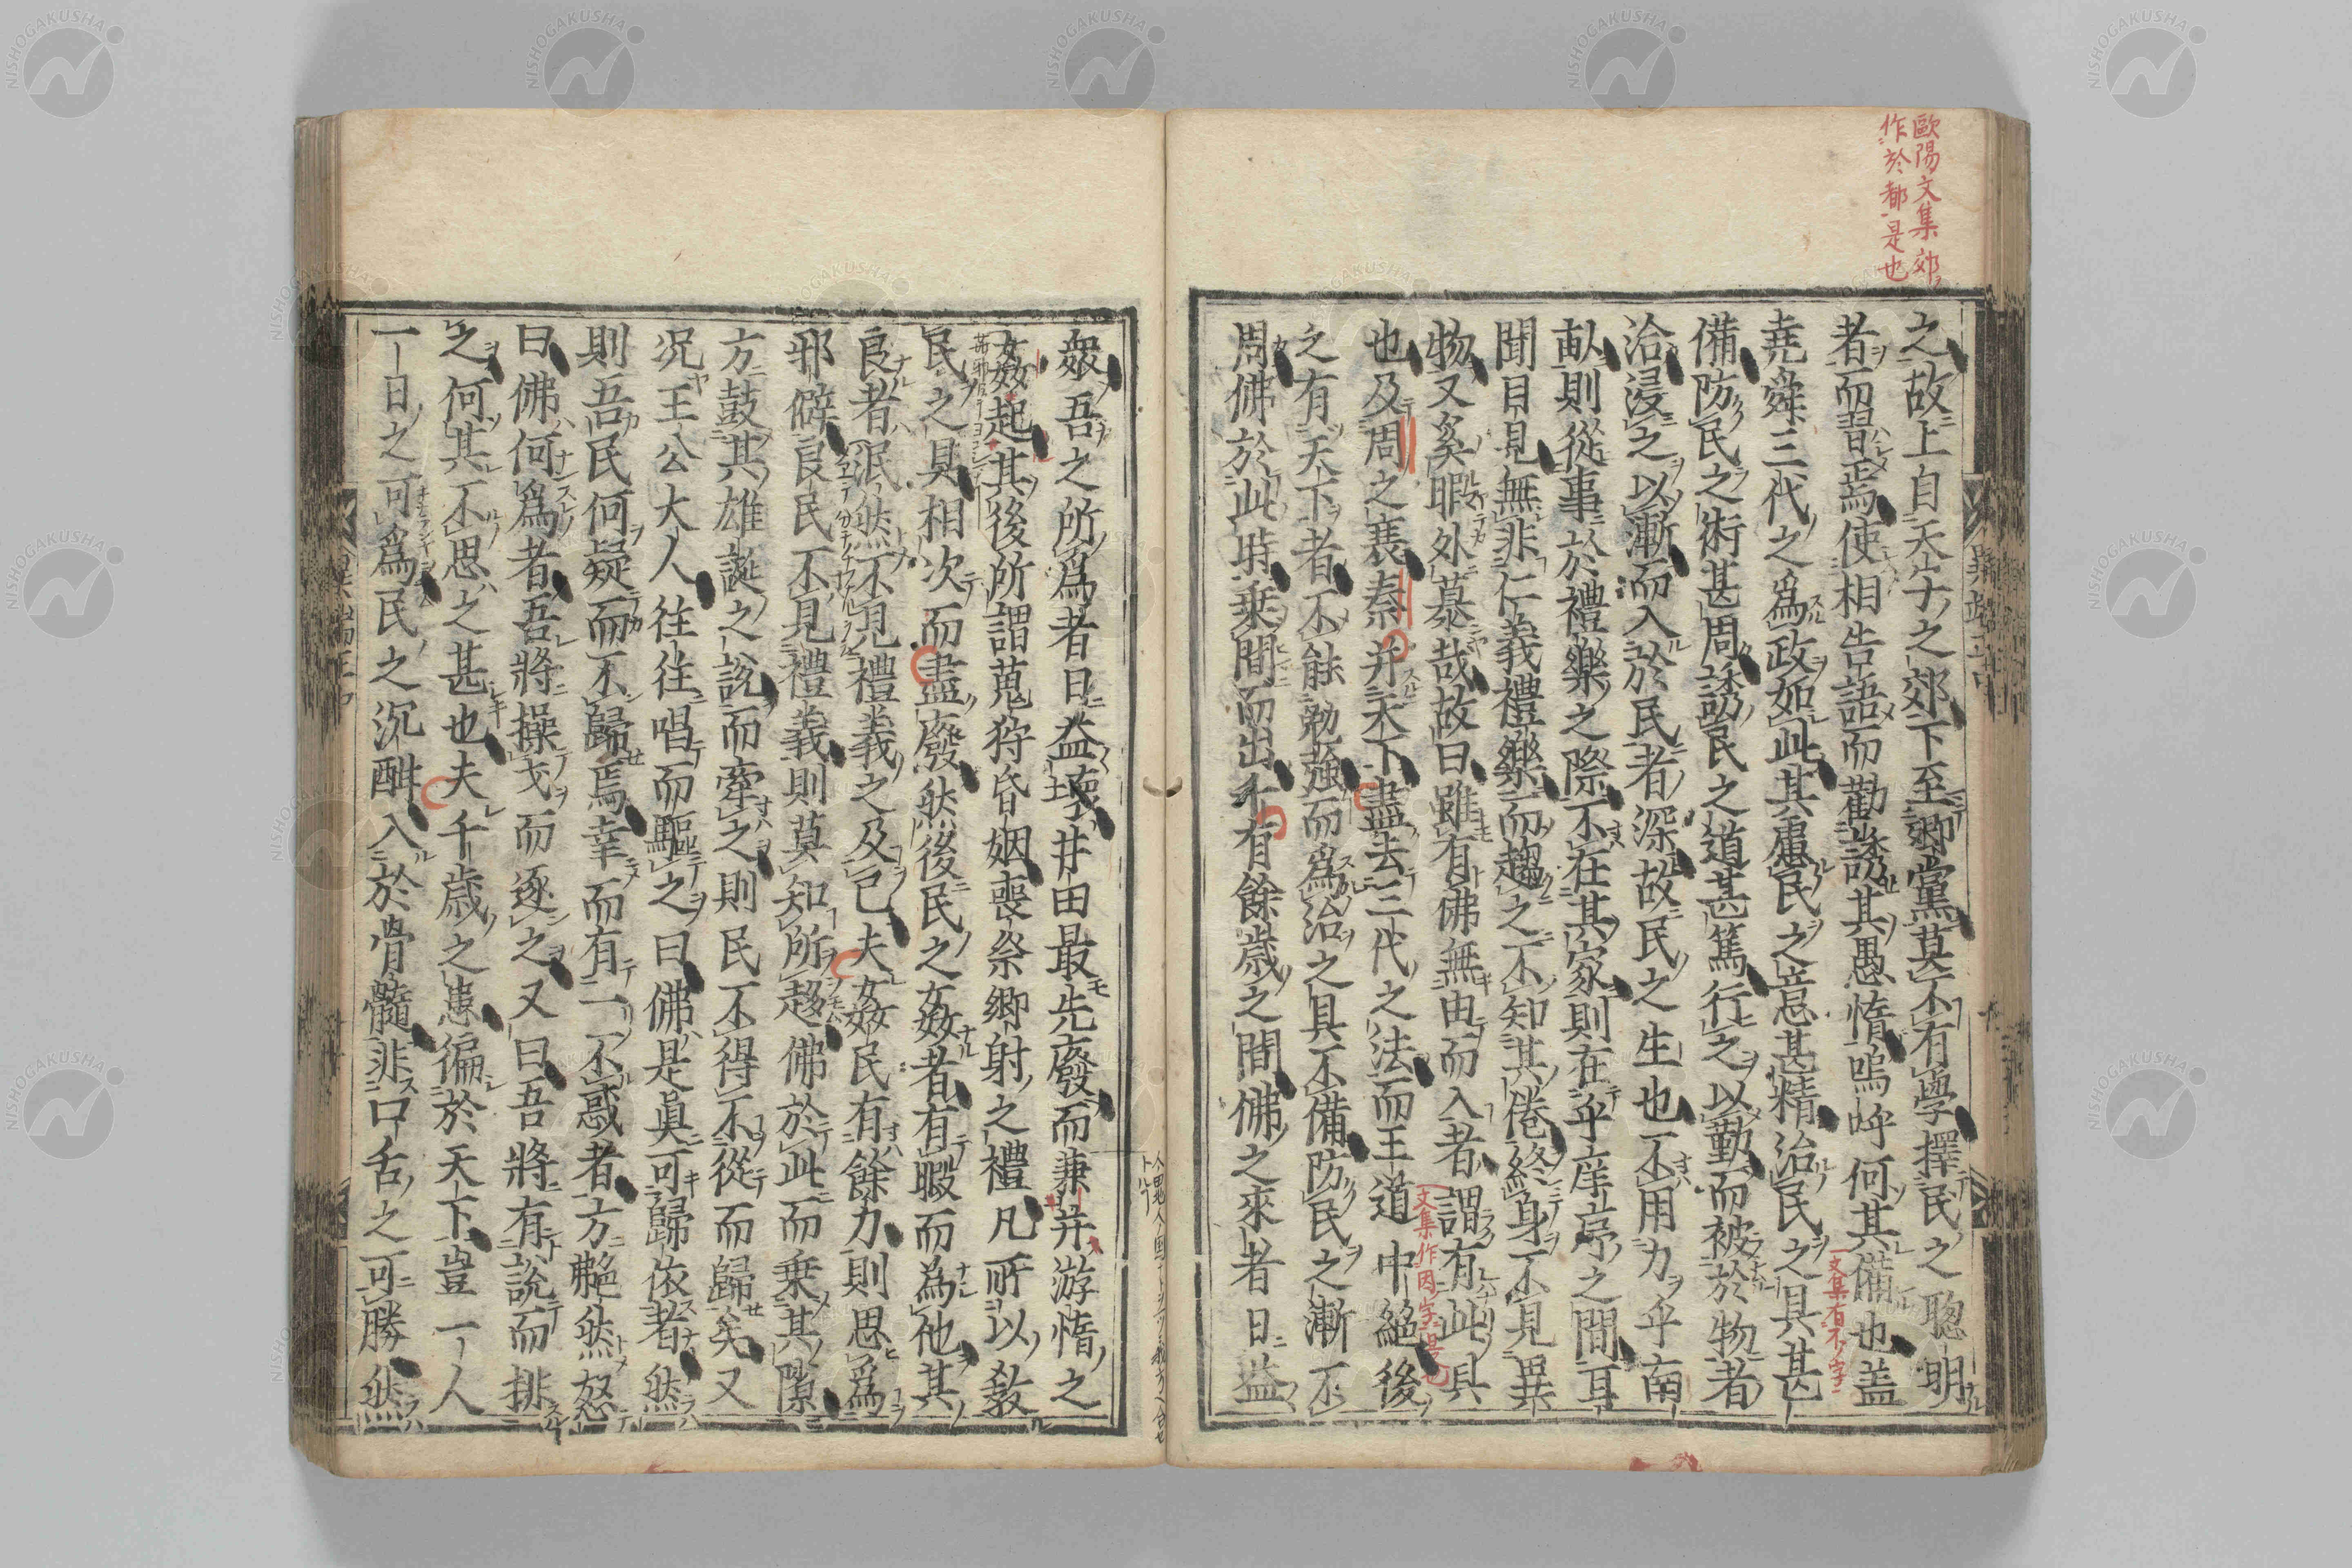 歐陽文集郊
作於都是也
之故上自天子之郊下至郷黨莫不有學擇民之聰明
者而習焉使相告語而勸誘其愚惰嗚呼何其備也盖
堯舜三代之爲政如此其慮民之意甚精治民之具甚
文集有不字
備防民之術甚周誘民之道甚篤行之以勤而被於物者
洽浸之以漸而入於民者深故民之生也不用力乎南
畝則從事於禮樂之際不在其家則在乎庠序之間耳
聞目見無非仁義禮樂而趨之不知其倦終身不見異
物又奚暇外慕哉故曰雖有佛無由而入者謂有此具
文集作因字是也
也及周之衰秦并天下盡去三代之法而王道中絕後
之有天下者不能勉强而爲治之具不備防民之漸不
周佛於此時乗間而出千有餘歳之間佛之來者日益
衆吾之所爲者日益壊井田最先廢而兼并游惰之
姦起其後所謂蒐狩昏姻喪祭郷射之禮凡所以敎
民之具相次而盡廢然後民之姦者有暇而為他其
良者泯然不見禮義之及己夫姦民有餘力則思爲
邪僻良民不見禮義則莫知所趍佛於此而乗其隙
方鼓其雄誕之說而牽之則民不得不從而歸矣又
况王公大人往往唱而驅之曰佛是眞可歸依者然
則吾民何疑而不歸焉幸而有一不惑者方艴然怒
曰佛何爲者吾將操戈而逐之又曰吾將有說而排
之何其不思之甚也夫千歳之患徧於天下豈一人
一日之可爲民之沉酣入於骨髓非口舌之可勝然